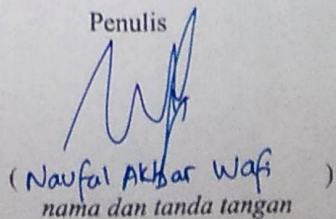 Penulis
(Naufal Akbar Wafi)
nama dan tanda tangan